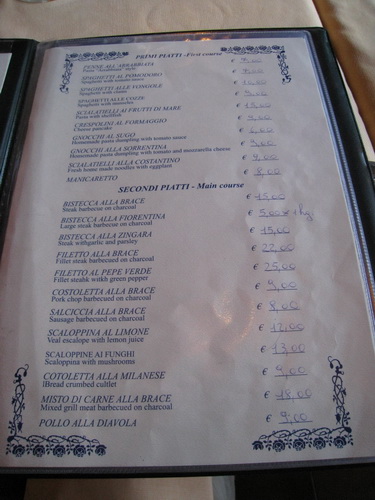 PRIMI PIATTI -First course
PENNE ALL'ARRABBIATA
SPAGHETTI AL POMODORO
Spaghetti with tomato sauce
SPAGHETTI ALLE VONGOLE
Spaghetti with clams
SPAGHETTI ALLE COZZE
Spaghetti with mussels
SCIALATIELLI AI FRUTTI DI MARE
Pasta with shellfish
CRESPOLINI AL FORMAGGIO
Cheese pancake
GNOCCHI AL SUGO
Homemade pasta dumpling with tomato sauce
GNOCCHI ALLA SORRENTINA
Homemade pasta dumpling with tomato and mozzarella cheese
SCIALATIELLI ALLA COSTANTINO
Fresh home made noodles with eggplant
MANICARETTO € 8,00
SECONDI PIATTI - Main course
BISTECCA ALLA BRACE € 15,00
Steak barbecue on charcoal
BISTECCA ALLA FIORENTINA € 5,00
Large steak barbecue on charcoal
BISTECCA ALLA ZINGARA € 15,00
Steak withgarlic and parsley
FILETTO ALLA BRACE € 22,00
Fillet steak barbecued on charcoal
FILETTO AL PEPE VERDE € 25,00
Fillet steahk witkh green pepper
COSTOLETTA ALLA BRACE € 9,00
Pork chop barbecued on charcoal
SALCICCIA ALLA BRACE € 8,00
Sausage barbecued on charcoal
SCALOPPINA AL LIMONE € 12,00
Veal escalope with lemon juice
SCALOPPINE AI FUNGHI € 13,00
Scaloppina with mushrooms
COTOLETTA ALLA MILANESE € 9,00
lBread crumbed cultlet
MISTO DI CARNE ALLA BRACE € 18,00
Mixed grill meat barbecued on charcoal
POLLO ALLA DIAVOLA € 9,00